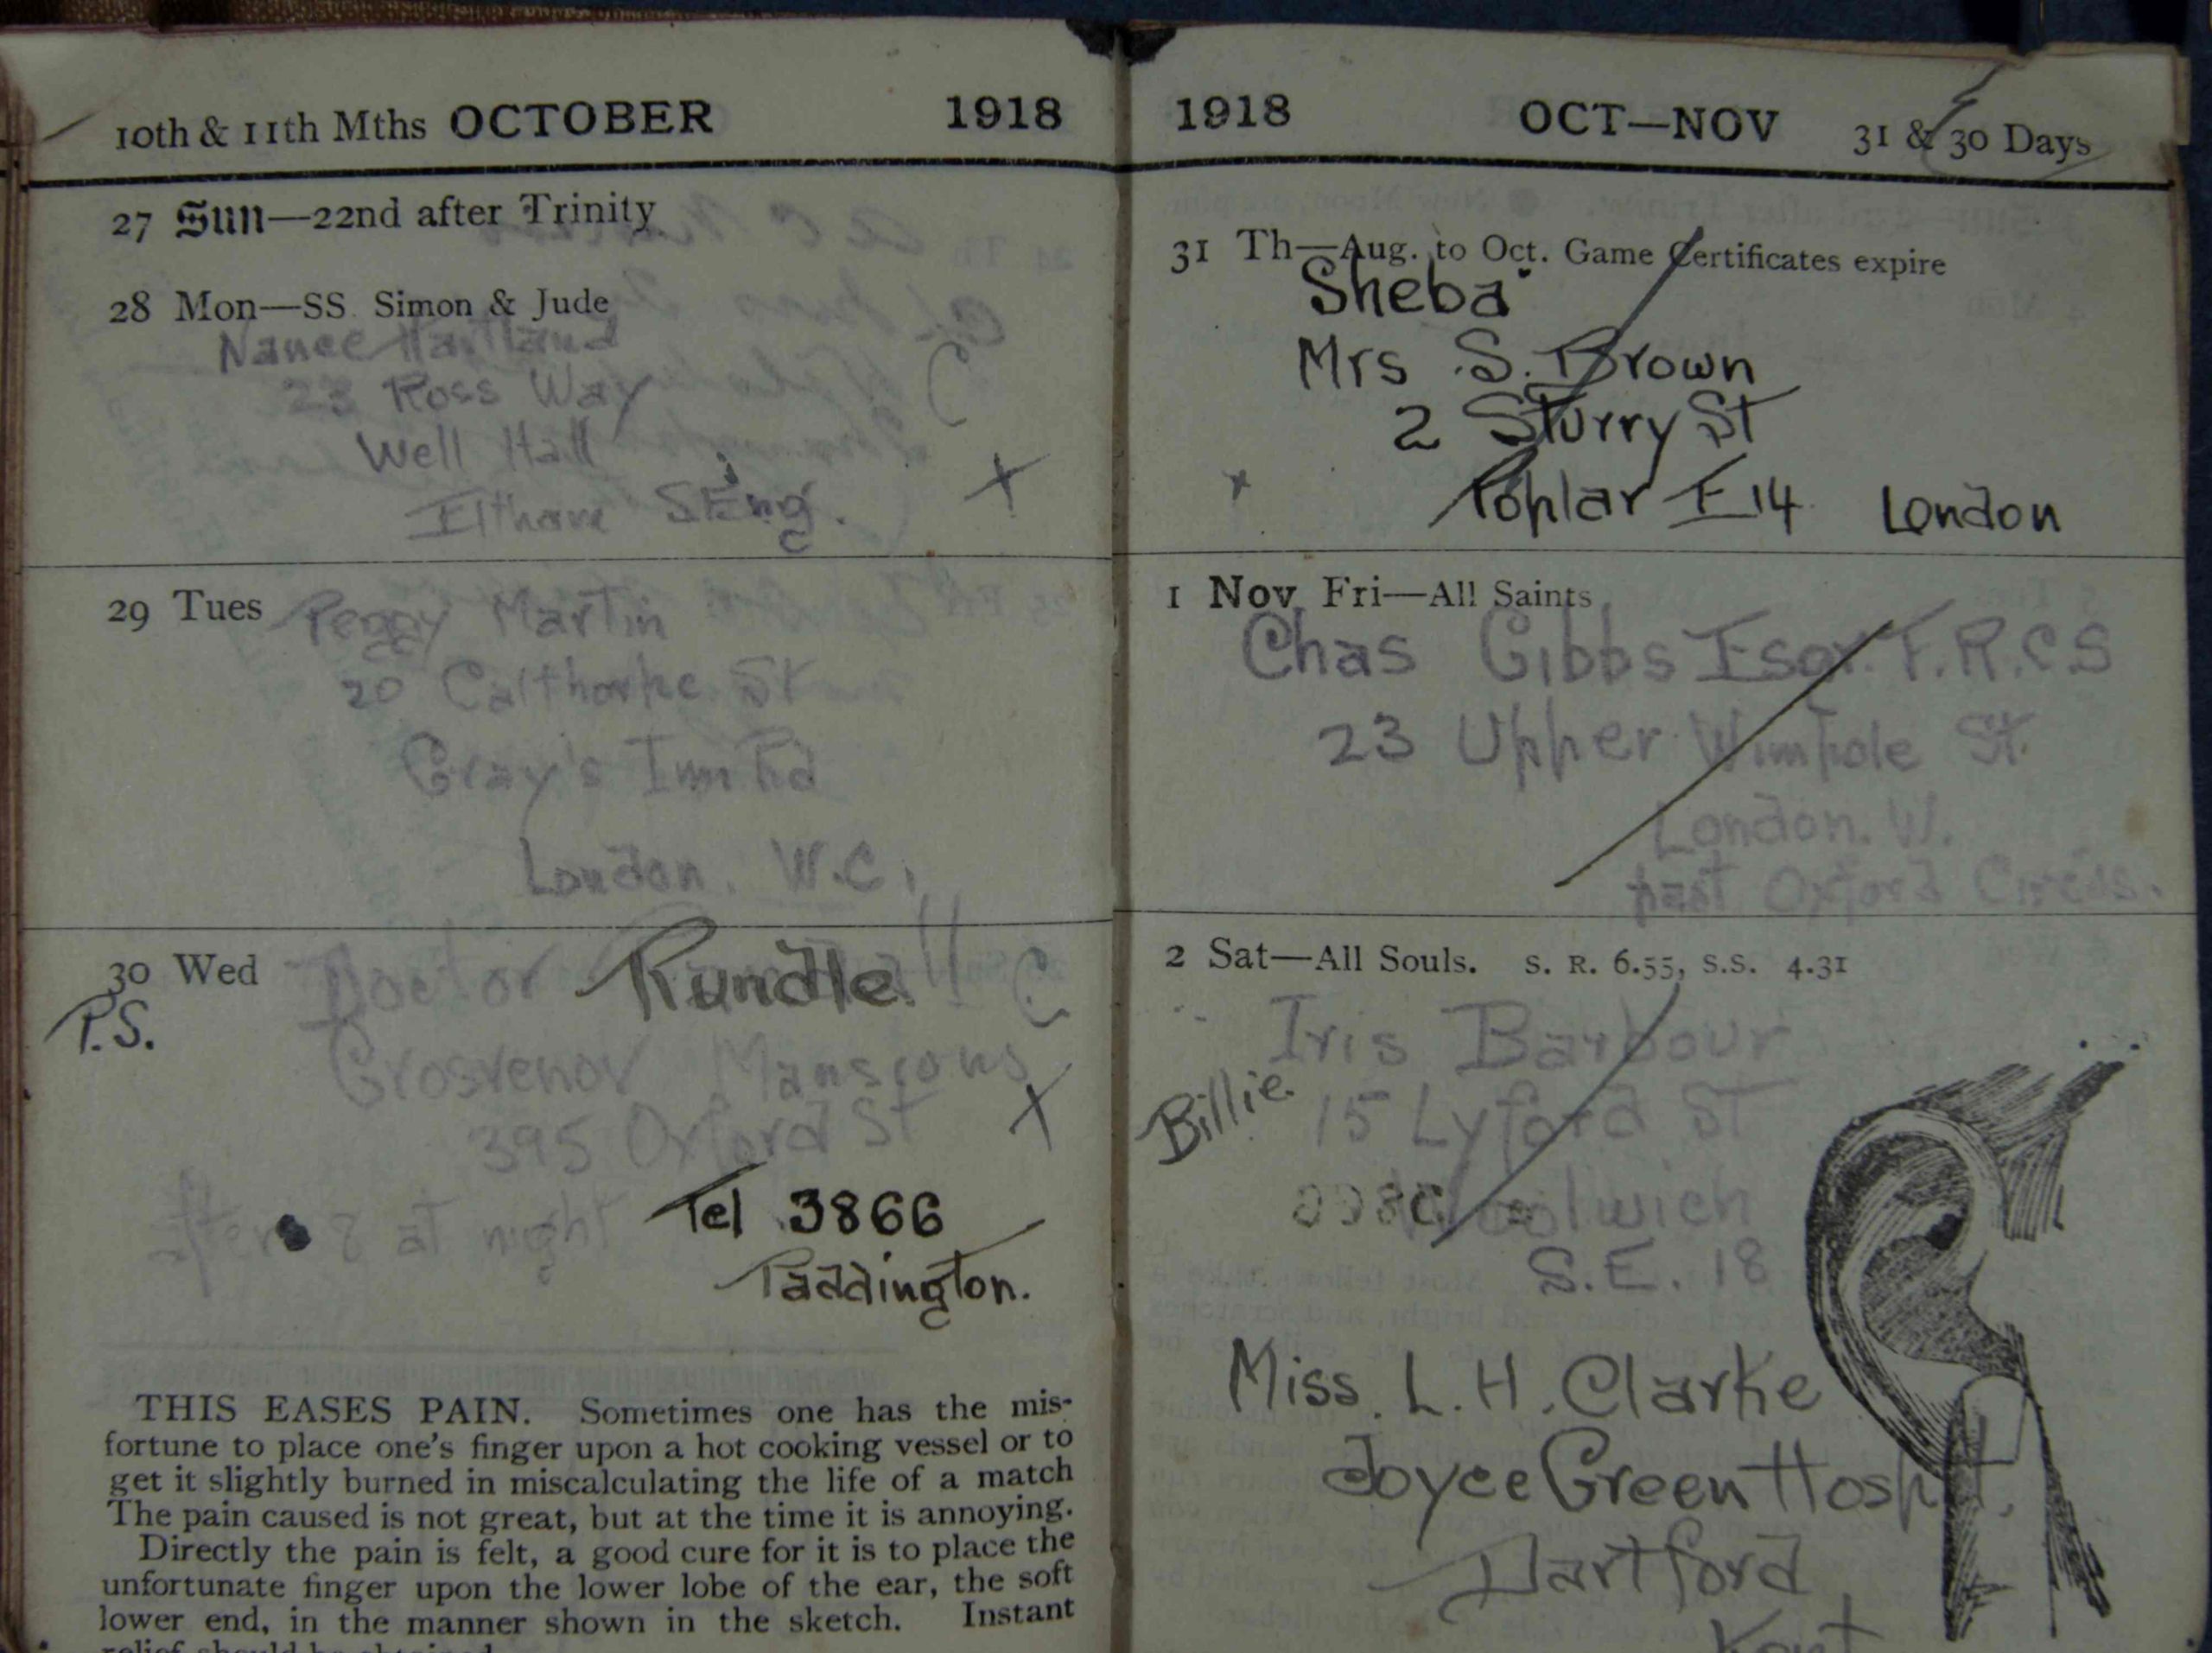 10th & 11th Mths OCTOBER 1918
27 Sun—22nd after Trinity
28 Mon—SS. Simon & Jude
Nance Hartland
23 Ross Way
Well Hall
Eltham SEng.
C
X
29 Tues Peggy Martin
20 Calthorpe St
Gray's Inn Rd
London. W.C.
30 Wed Doctor Rundle. C
P.S.
Grosvenor Mansions
X
395 Oxford St
after 8 at night Tel 3866
Paddington.
THIS EASES PAIN. Sometimes one has the mis-
fortune to place one's finger upon a hot cooking vessel or to
get it slightly burned in miscalculating the life of a match
The pain caused is not great, but at the time it is annoying.
Directly the pain is felt, a good cure for it is to place the
unfortunate finger upon the lower lobe of the ear, the soft
lower end, in the manner shown in the sketch. Instant
relief should be obtained
1918 OCT—NOV 31 & 30 Days
31 Th—Aug. to Oct. Game Certificates expire
Sheba
Mrs S. Brown
2 Sturry St
x Poplar E14 London
1 Nov Fri—All Saints
Chas Gibbs Esqr. F.R.C.S
23 Upper Wimpole St.
London. W.
past Oxford Circus.
2 Sat—All Souls. S. R. 6.55, S.S. 4.31
Iris Barbour
Billie. 15 Lyford ST
Woolwich
S.E. 18
Miss. L. H. Clarke
Joyce Green Hospt.
Dartford
Kent